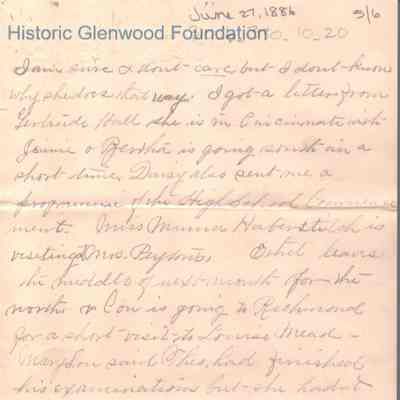 June 27, 1886
5/6
Historic Glenwood Foundation
10_20
I am sure I don't care but I don't know
why she does that way. I got a letter from
Gertrude Hall she is in Cincinnati with
Jennie & Bertha is going south in a
short time. Daisy also sent me a
programme of the High School Commence
ment. Miss Minnie Haberstitch is
visiting Mrs. Peyton. Ethel leaves
the middle of next month for the
north & Con is going to Richmond
for a short visit to Louise Mead –
Mary Lou said Theo. had finished
his examinations but she hadn't